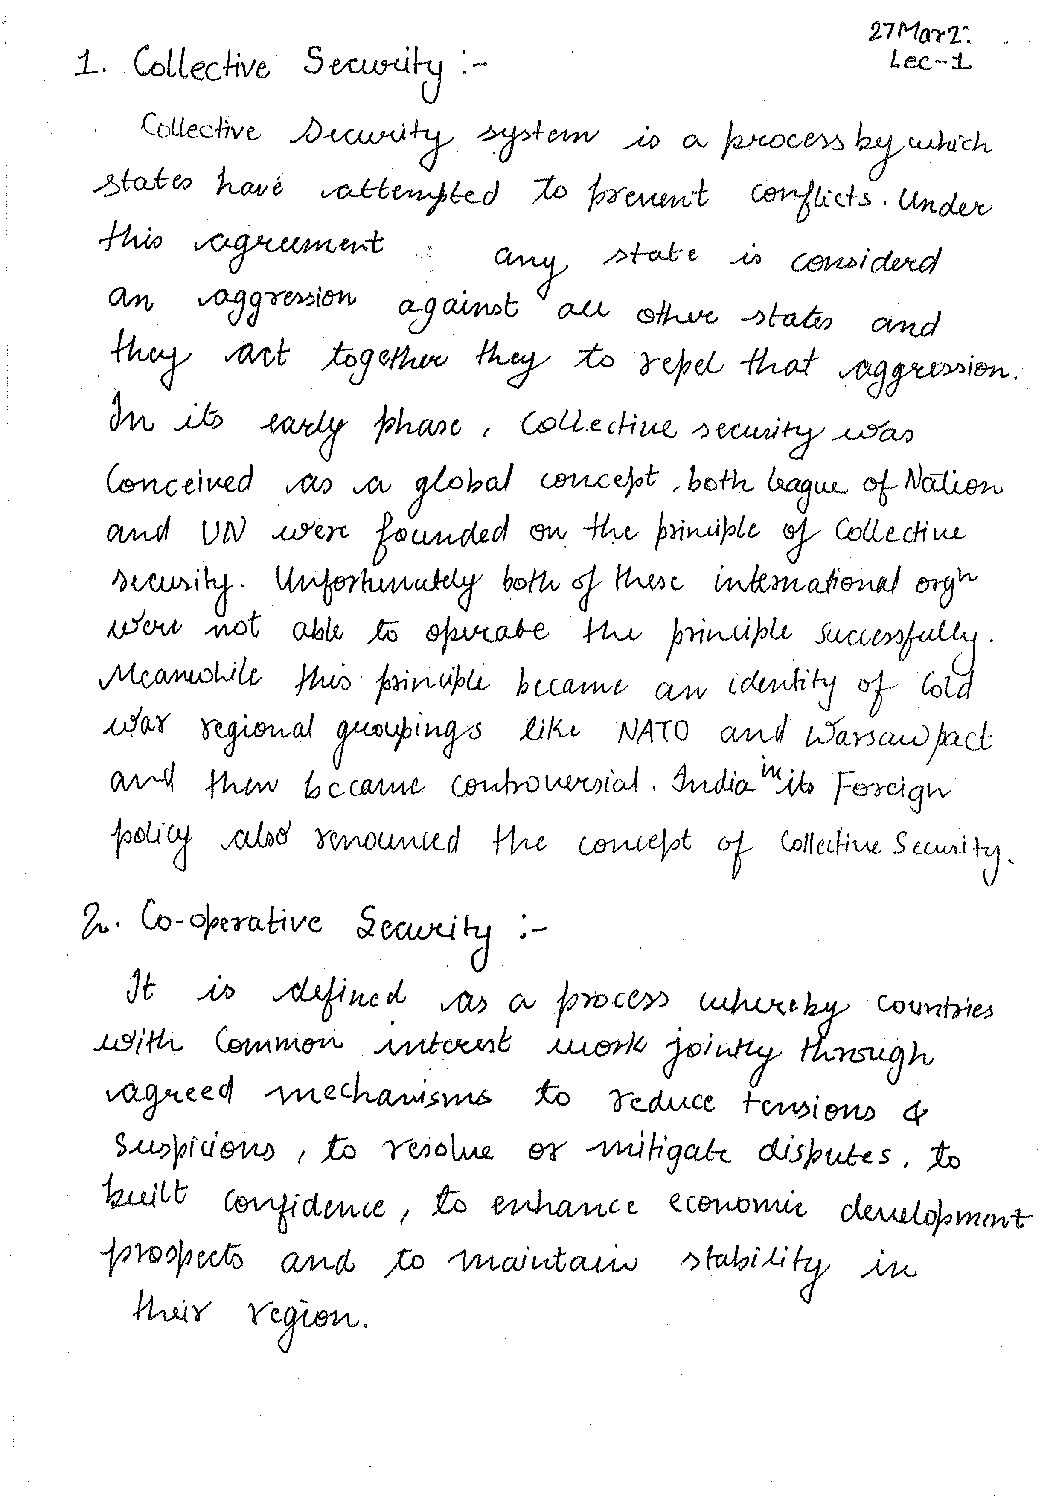 27 Mar 2
Lec-1
1. Collective Security :-
Collective Security system is a process by which
states have attempted to prevent conflicts. Under
this agreement any state is considerd
an aggression against all other states and
they act together they to repel that aggression.
In its early phase, Collective security was
Conceived as a global concept, both league of Nation
and UN were founded on the principle of Collective
security. Unfortunately both of these international orgn
were not able to operate the principle successfully.
Meanwhile this principle became an identity of Cold
war regional groupings like NATO and Warsaw pact
and then became controversial. India in its Foreign
policy also renounced the concept of Collective Security.
2. Co-operative Security :-
It is defined as a process whereby countries
with Common interest work jointly through
agreed mechanisms to reduce tensions &
suspicions, to resolve or mitigate disputes, to
built confidence, to enhance economic development
prospects and to maintain stability in
their region.